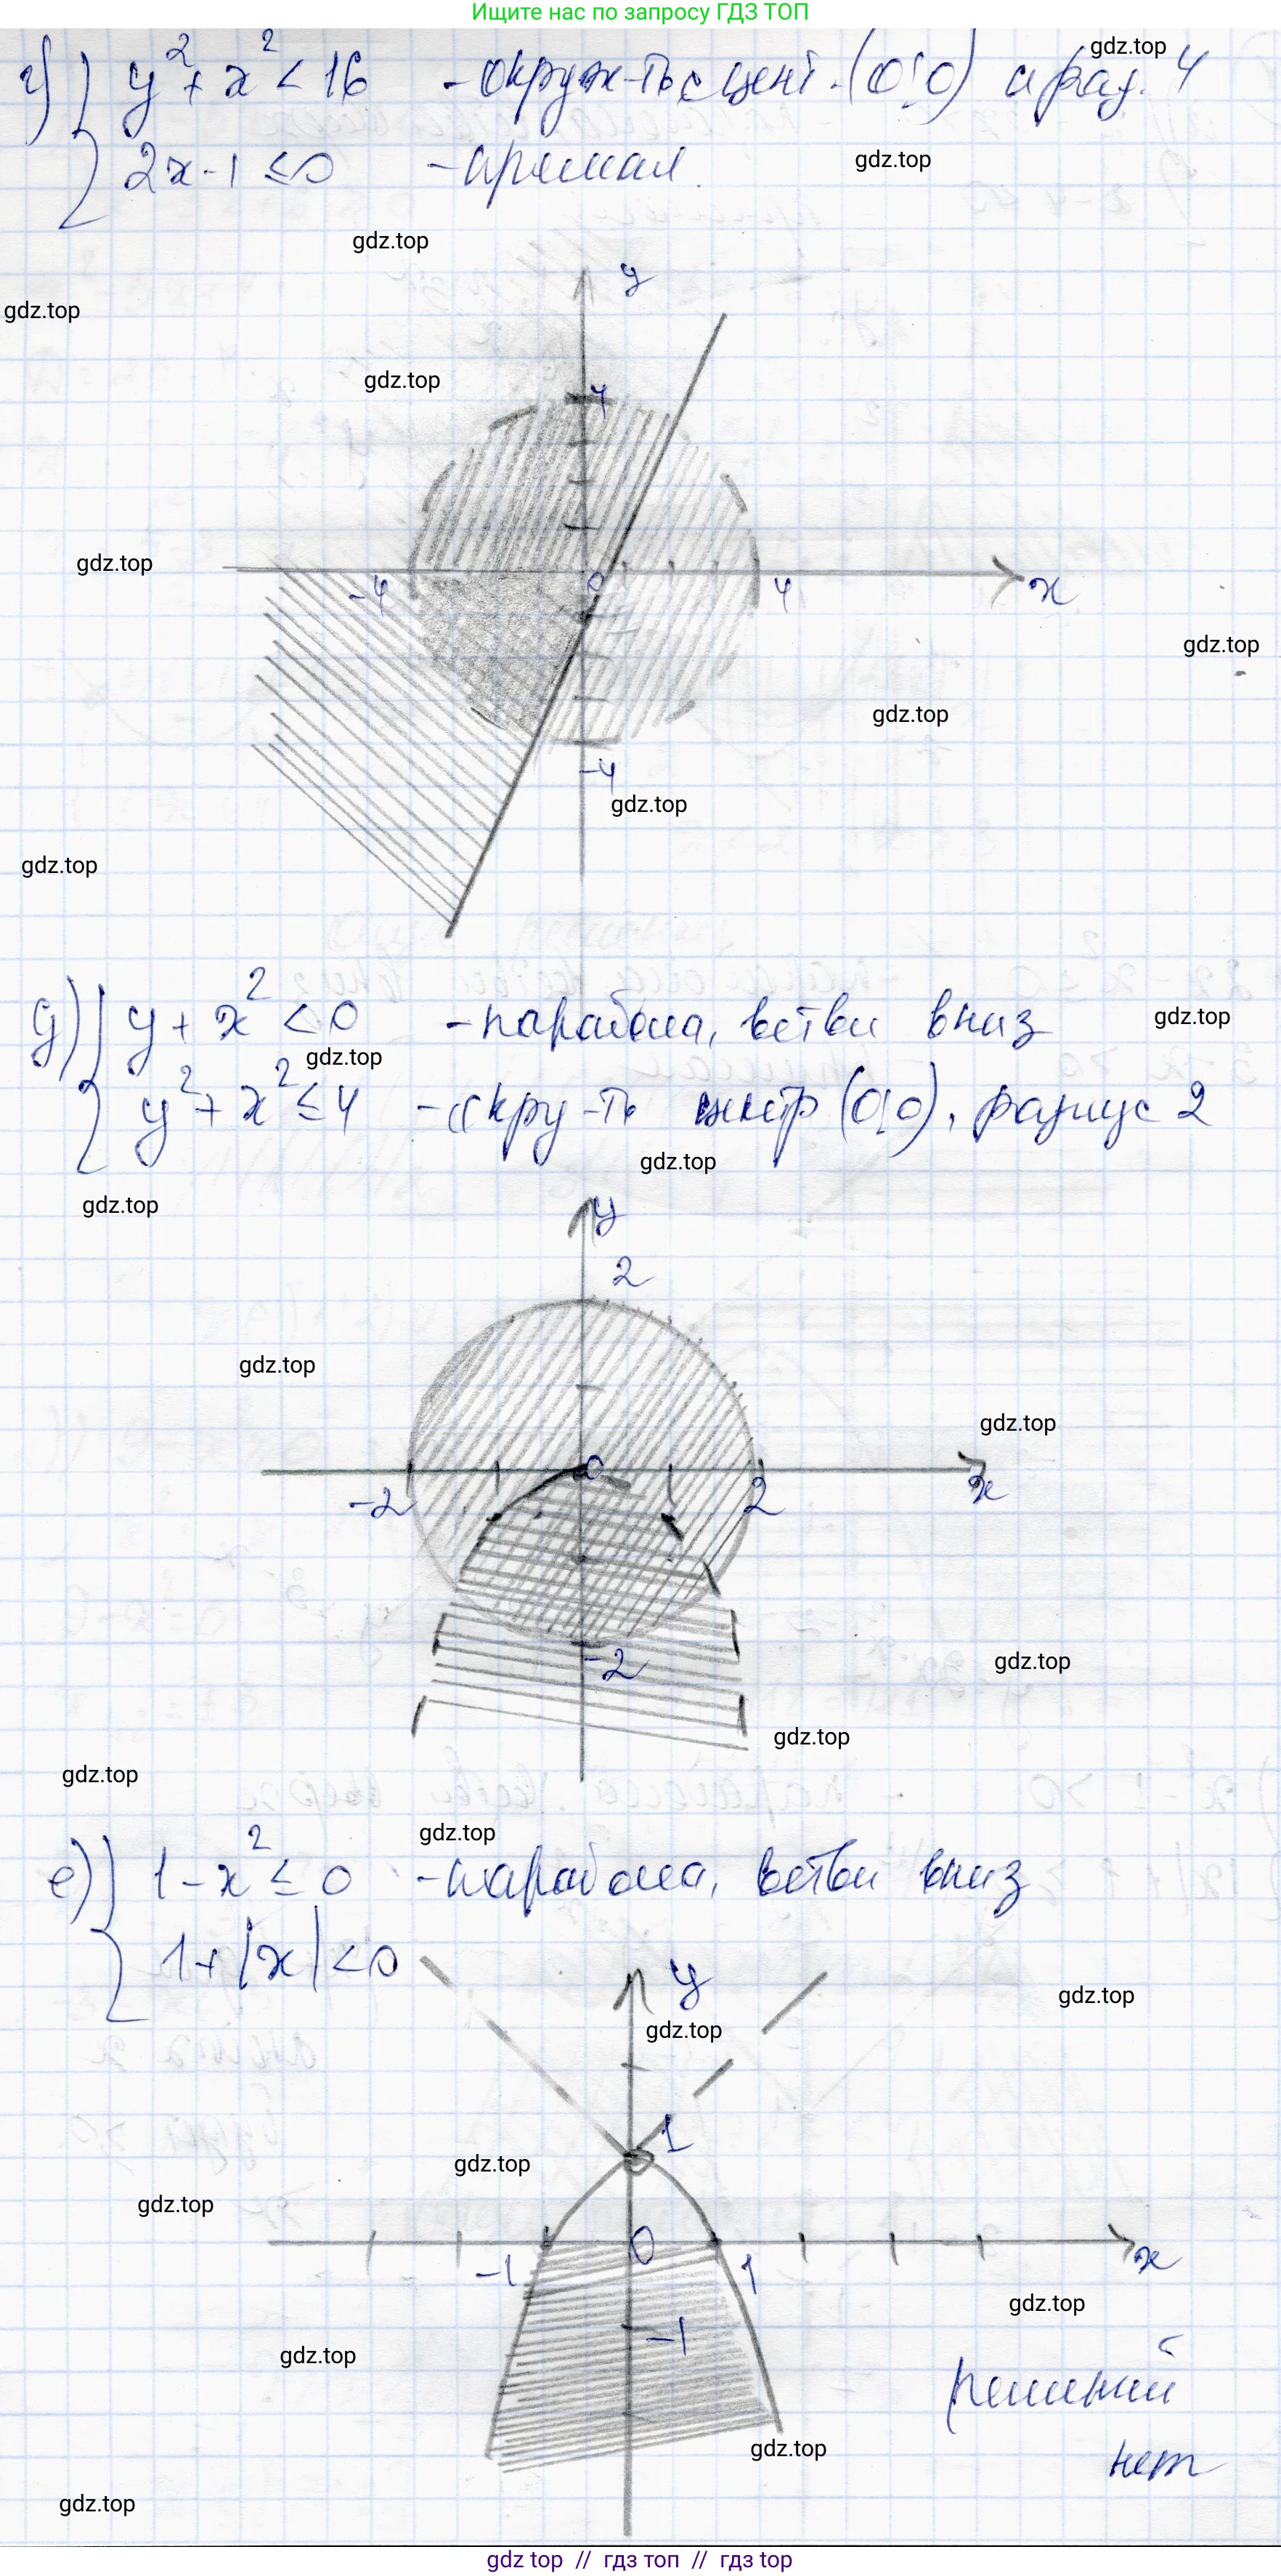 Ищите нас по запросу ГДЗ ТОП
г) { y² + x² < 16 - окруж-ть с цент. (0;0) и рад. 4
2x - 1 ≤ 0 - прямая.
y
4
-4 0 4 x
-4
д) { y + x² < 0 - парабола, ветви вниз
y² + x² ≤ 4 - окру-ть центр (0;0), радиус 2
y
2
-2 0 2 x
-2
е) { 1 - x² ≤ 0 - парабола, ветви вниз
1 + |x| < 0
y
1
-1 0 1 x
-1
решений
нет
gdz top // гдз топ // гдз top